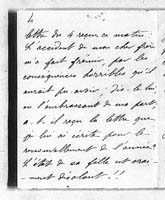 4
lettre du 4 reçue ce matin.
L'accident de mon cher frère
m'a fait frémir, par les
conséquences horribles qu'il
aurait pu avoir; Dis-le lui
en l'embrassant de ma part,
a-t-il reçu la lettre que
je lui ai écrite pour le
renouvellement de l'année?
L'état de sa fille est vrai-
ment désolant!!